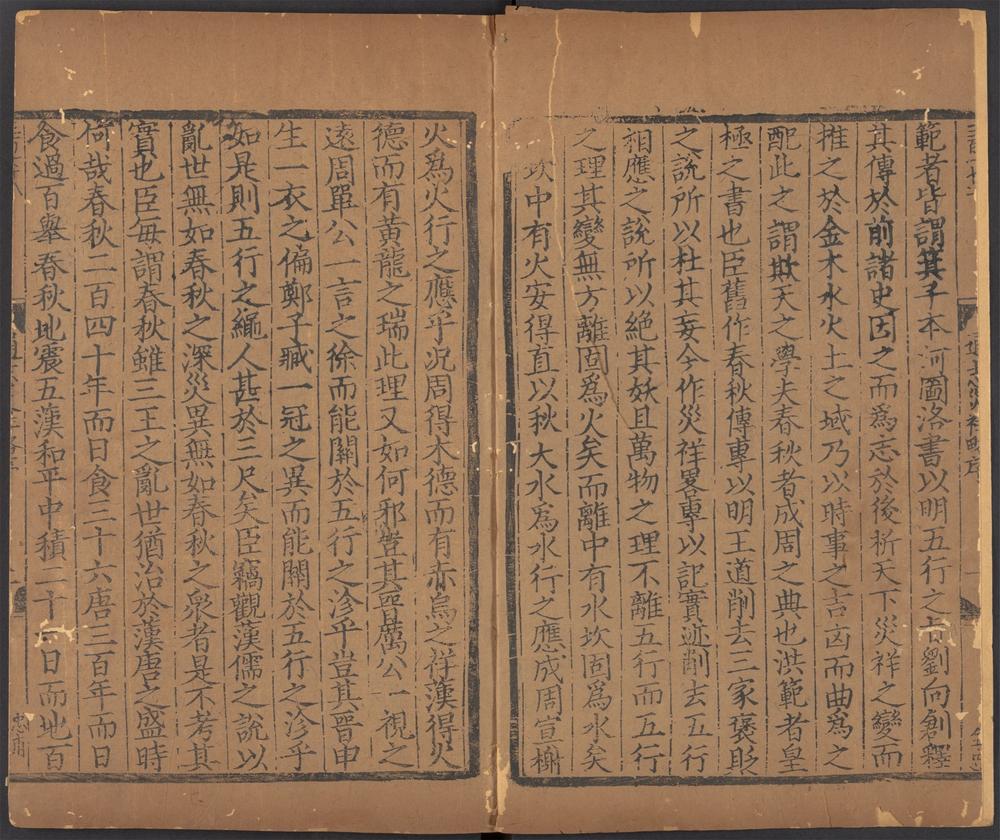 範者皆謂箕子本河圖洛書以明五行之占劉向創釋
其傳於前諸史因之而為志於後析天下災祥之變而
推之於金木水火土之域乃以時事之吉凶而曲為之
配此之謂欺天之學夫春秋者成周之典也洪範者皇
極之書也臣舊作春秋傳專以明王道削去三家褒貶
之說所以杜其妄今作災祥畧專以記實迹削去五行
相應之說所以絕其妖且萬物之理不離五行而五行
之理其變無方離固為火矣而離中有水坎固為水矣
坎中有火安得直以秋大水為水行之應成周宣榭
火為火行之應乎況周得木德而有赤烏之祥漢得火
德而有黃龍之瑞此理又如何邪豈其晉厲公一視之
遠周單公一言之徐而能關於五行之沴乎豈其晉申
生一衣之偏鄭子臧一冠之異而能關於五行之沴乎
如是則五行之繩人甚於三尺矣臣竊觀漢儒之說以
亂世無如春秋之深災異無如春秋之衆者是不考其
實也臣每謂春秋雖三王之亂世猶治於漢唐之盛時
何哉春秋二百四十年而日食三十六唐三百年而日
食過百舉春秋地震五漢和平中積二十一日而地百